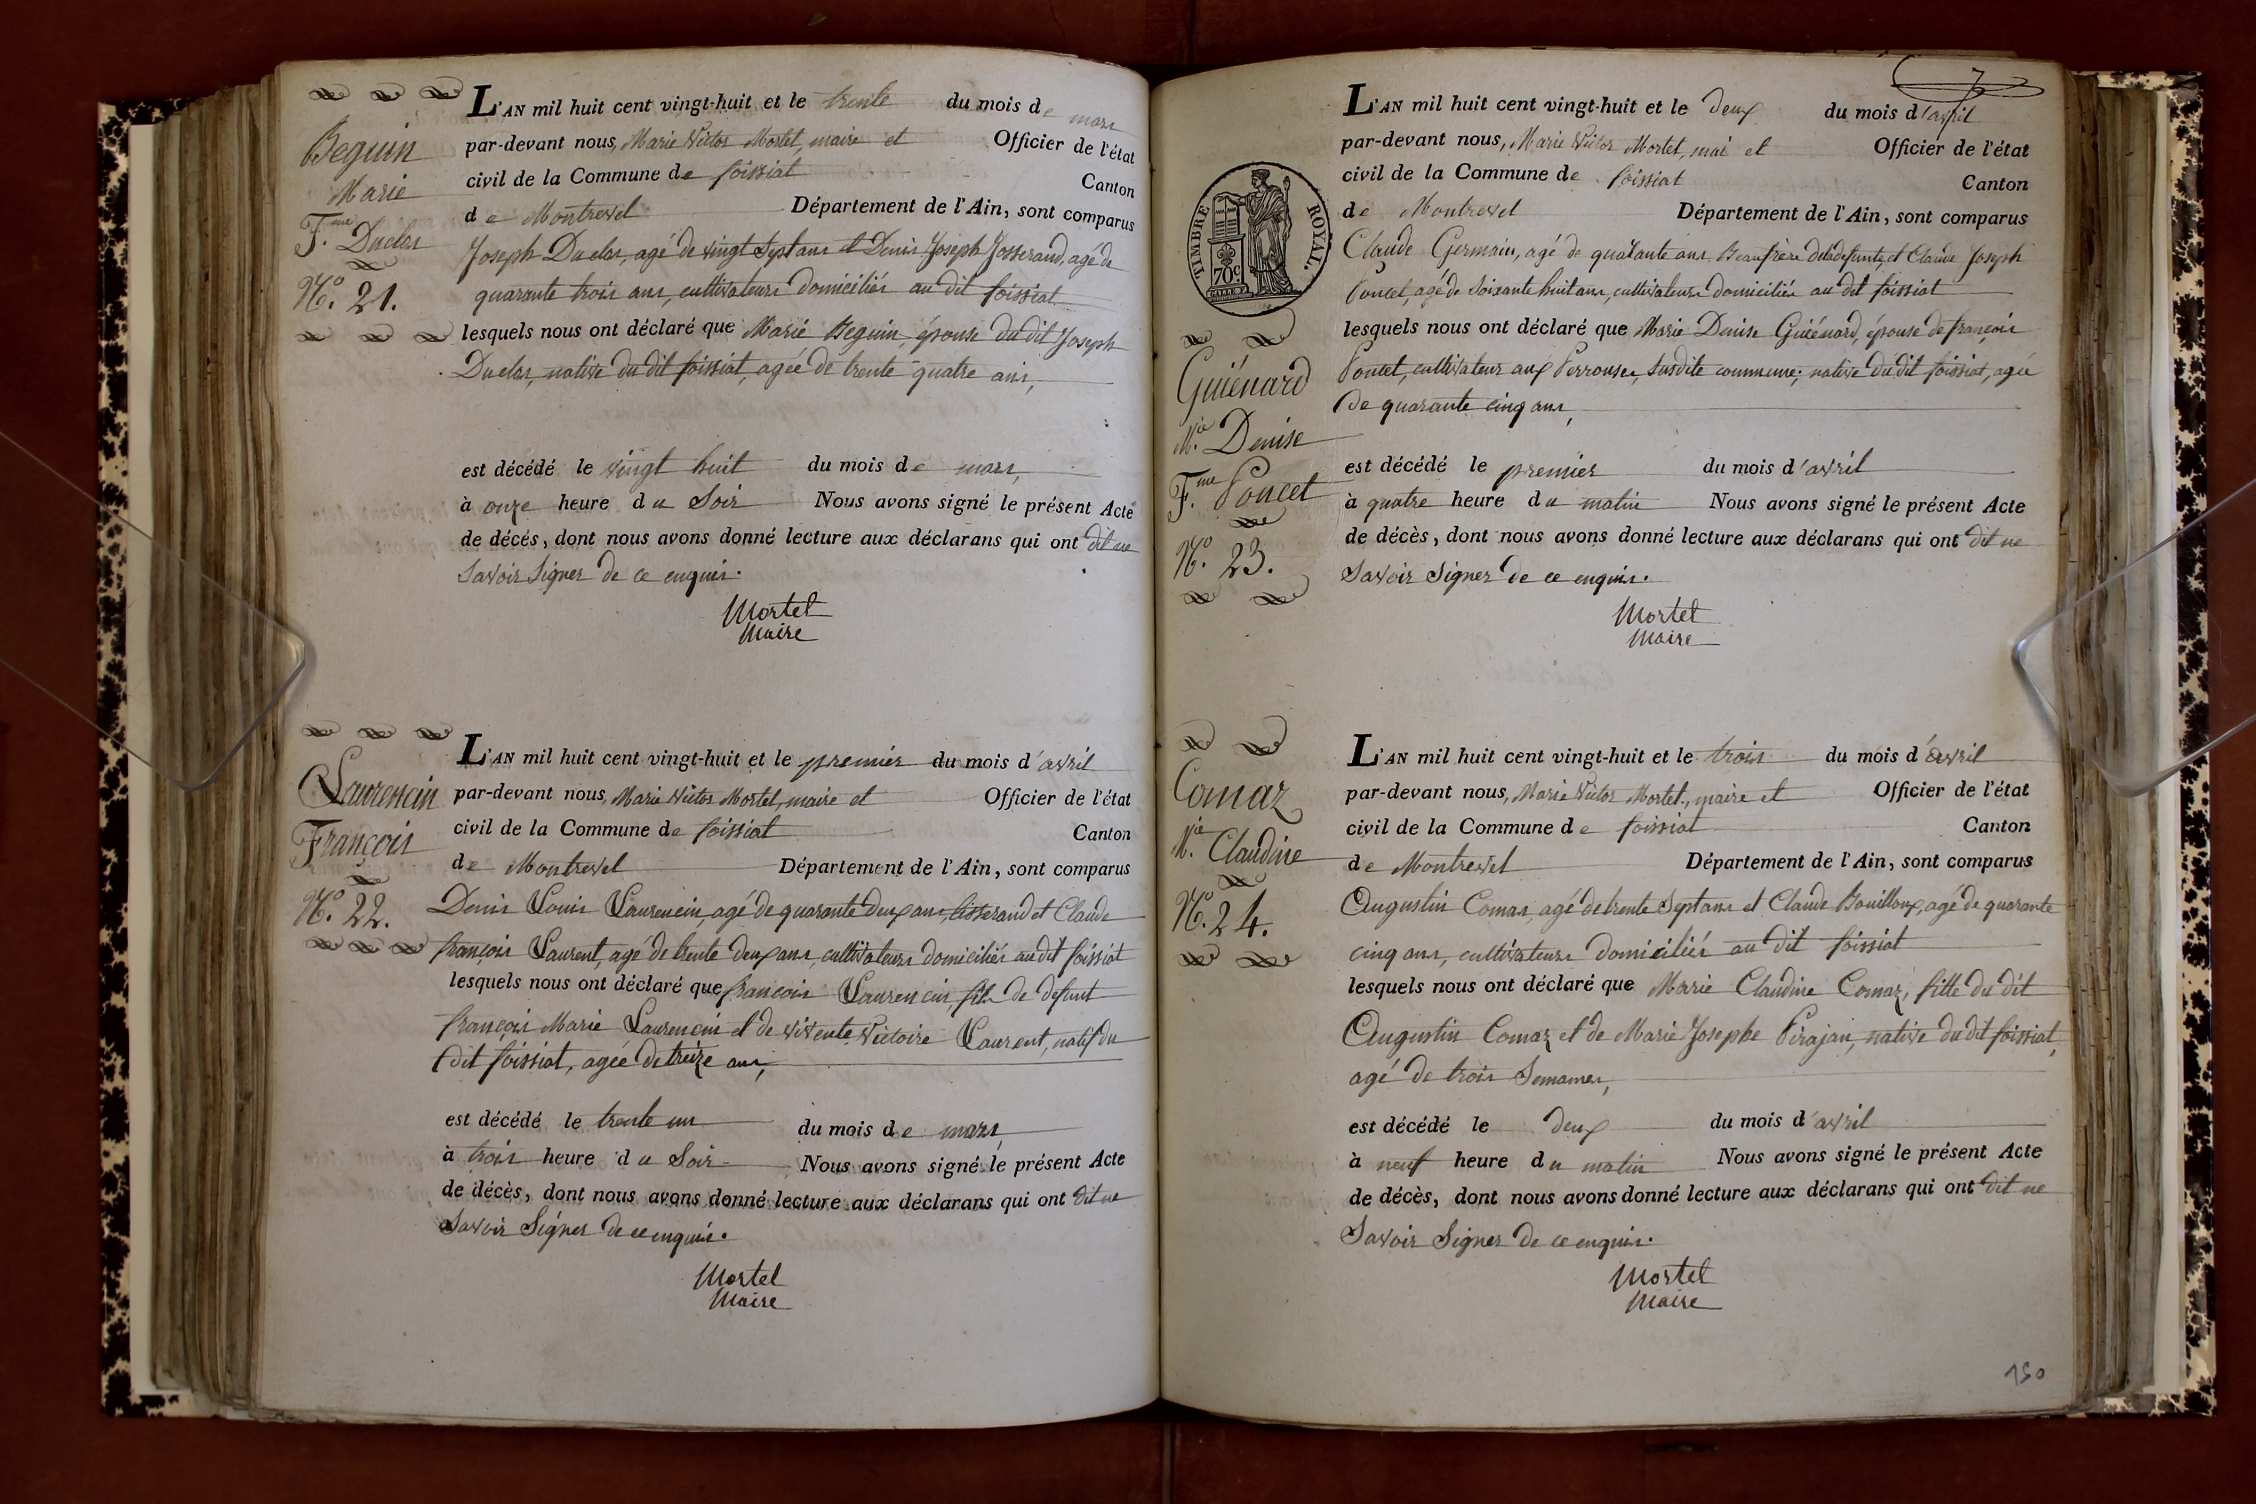 Beguin
Marie
F.me Duclos
N.o 21.
L'AN mil huit cent vingt-huit et le trente du mois de mars
par-devant nous, Marie Victor Mortel, maire et Officier de l'état
civil de la Commune de foissiat Canton
de Montrevel Département de l'Ain, sont comparus
Joseph Duclos, agé de vingt Sept ans et Denis Joseph Josserand, agé de
quarante trois ans, cultivateurs domiciliés au dit foissiat
lesquels nous ont déclaré que Marie Beguin, épouse du dit Joseph
Duclos, native du dit foissiat, agée de trente quatre ans,
est décédé le vingt huit du mois de mars,
à onze heure du Soir Nous avons signé le présent Acte
de décés, dont nous avons donné lecture aux déclarans qui ont dit ne
Savoir Signer de ce enquis.
Mortel
Maire
Laurencin
François
N.o 22.
L'AN mil huit cent vingt-huit et le premier du mois d'avril
par-devant nous, Marie Victor Mortel, maire et Officier de l'état
civil de la Commune de foissiat Canton
de Montrevel Département de l'Ain, sont comparus
Denis Louis Laurencin, agé de quarante deux ans, tisserand et Claude
françois Laurent, agé de trente deux ans, cultivateurs domiciliés au dit foissiat
lesquels nous ont déclaré que françois Laurencin, fils de defunt
françois Marie Laurencin et de vivente Victoire Laurent, natif du
dit foissiat, agée de treize ans,
est décédé le trente un du mois de mars,
à trois heure du Soir Nous avons signé le présent Acte
de décès, dont nous avons donné lecture aux déclarans qui ont dit ne
Savoir Signer de ce enquis.
Mortel
Maire
7
TIMBRE ROYAL.
70c
Guiénard
M.ie Denise
F.me Poncet
N.o 23.
L'AN mil huit cent vingt-huit et le deux du mois d'avril
par-devant nous, Marie Victor Mortel, mai et Officier de l'état
civil de la Commune de foissiat Canton
de Montrevel Département de l'Ain, sont comparus
Claude Germain, agé de quarante ans, Beaufrère de la defunte, et Claude Joseph
Poncet, agé de Soixante huit ans, cultivateurs domiciliés au dit foissiat
lesquels nous ont déclaré que Marie Denise Guiénard, épouse de françois
Poncet, cultivateur aux Perrouses, Susdite commune; native du dit foissiat, agée
de quarante cinq ans,
est décédé le premier du mois d'avril
à quatre heure du matin Nous avons signé le présent Acte
de décès, dont nous avons donné lecture aux déclarans qui ont dit ne
Savoir Signer de ce enquis.
Mortel
Maire
Comaz
M.ie Claudine
N.o 24.
L'AN mil huit cent vingt-huit et le trois du mois d'avril
par-devant nous, Marie Victor Mortel, maire et Officier de l'état
civil de la Commune de foissiat Canton
de Montrevel Département de l'Ain, sont comparus
Augustin Comas, agé de trente Sept ans et Claude Bouilloux, agé de quarante
cinq ans, cultivateurs domiciliés au dit foissiat
lesquels nous ont déclaré que Marie Claudine Comaz, fille du dit
Augustin Comaz et de Marie Josephe Pirajan, native du dit foissiat,
agé de trois Semaines,
est décédé le deux du mois d'avril
à neuf heure du matin Nous avons signé le présent Acte
de décès, dont nous avons donné lecture aux déclarans qui ont dit ne
Savoir Signer de ce enquis.
Mortel
Maire
150